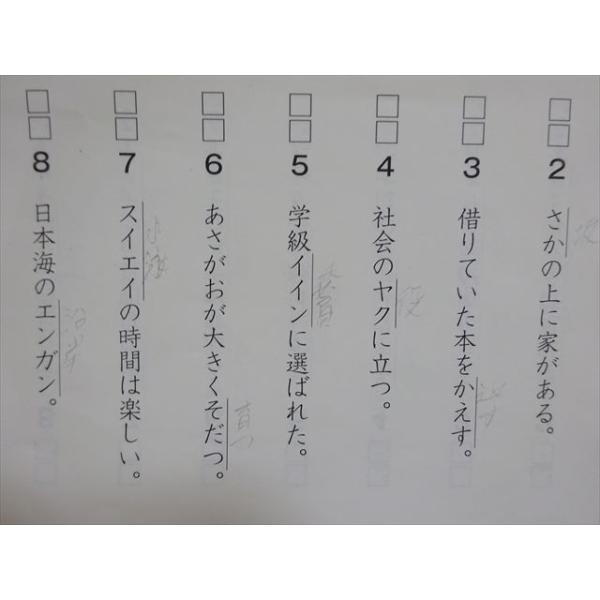 2 さかの上に家がある。
3 借りていた本をかえす。
4 社会のヤクに立つ。
役
5 学級イインに選ばれた。
6 あさがおが大きくそだつ。
育つ
7 スイエイの時間は楽しい。
水泳
8 日本海のエンガン。
沿岸